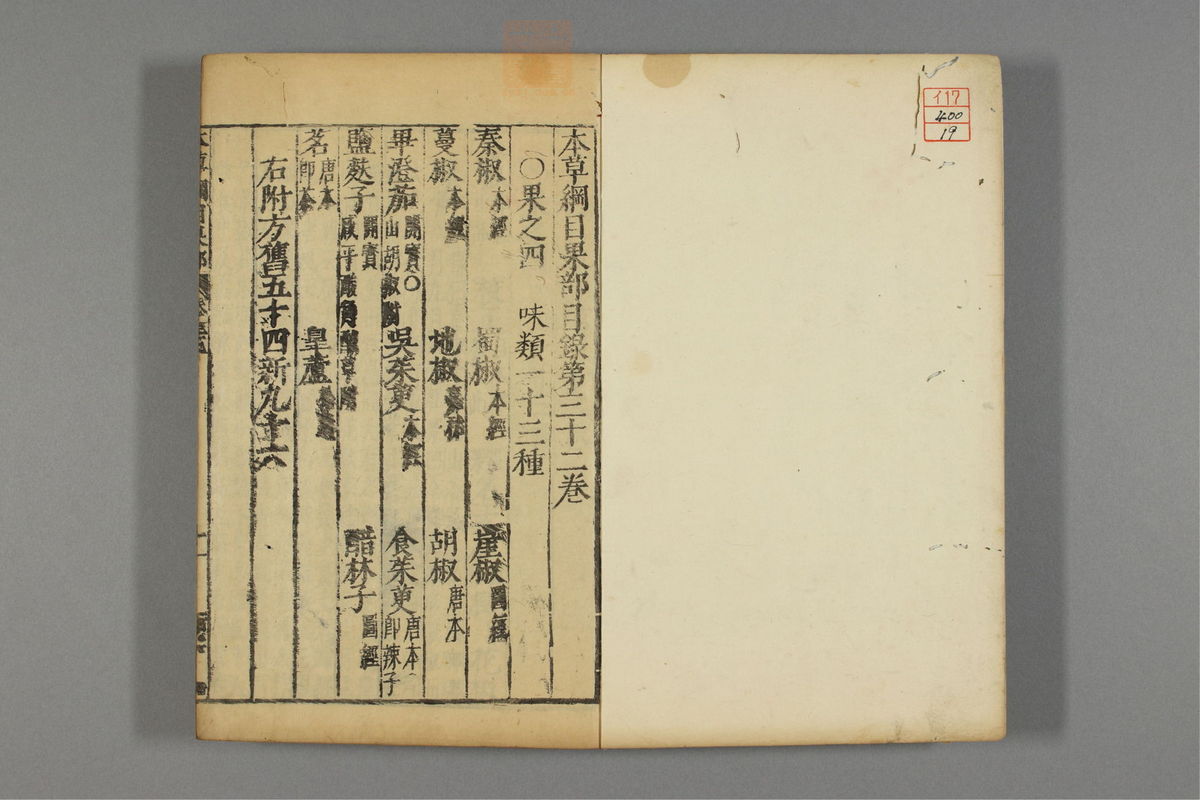 イ17
400
19
本草綱目果部目錄第三十二卷
○果之四 味類一十三種
秦椒本經 蜀椒本經 崖椒圖經
蔓椒本經 地椒 胡椒唐本
畢澄茄開寶○山胡椒附 吳茱萸本經 食茱萸唐本即辣子
鹽麩子開寶 醋林子圖經
茗唐本即茶 皐蘆
右附方舊五十四新九十六